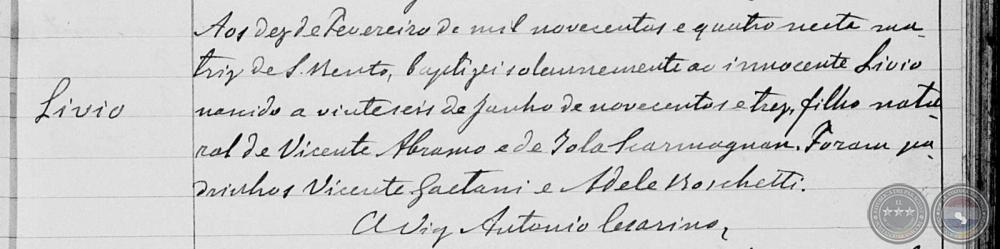 Aos dez de Fevereiro de mil novecentos e quatro nesta ma-
triz de S. Bento, baptizei solemnemente ao innocente Livio
Livio
nascido a vinte seis de Junho de novecentos e trez, filho natu-
ral de Vicente Abramo e de Iola Scarmagnan. Foram pa-
drinhos Vicente Gaetani e Adele Boschetti.
O Vig Antonio Cesarino,